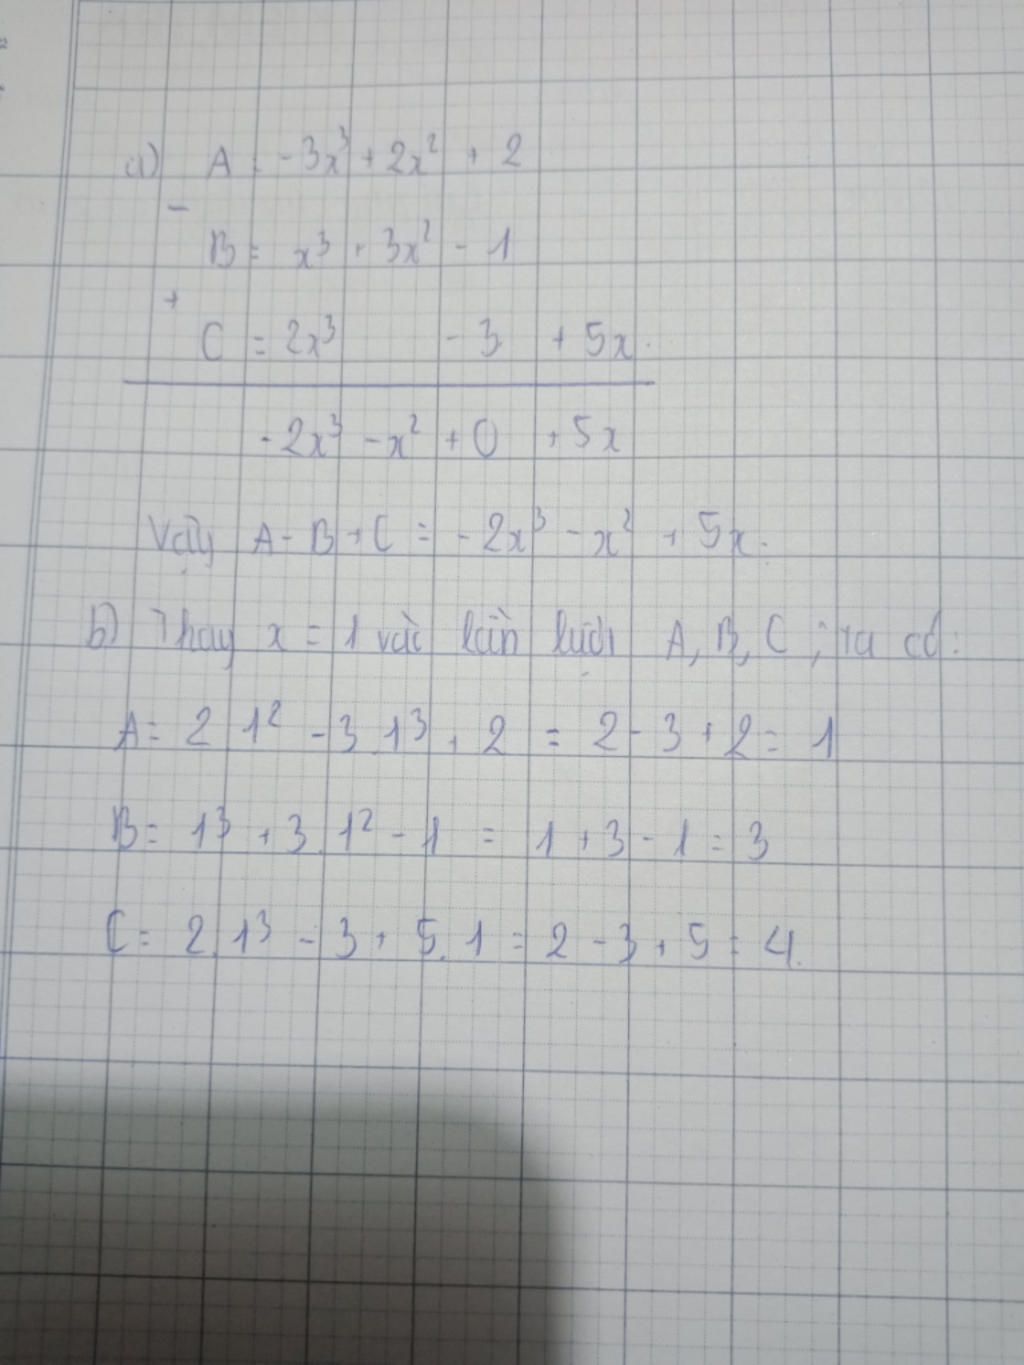 a) A = -3x³ + 2x² + 2
-
B = x³ + 3x² - 1
+
C = 2x³ - 3 + 5x.
-2x³ - x² + 0 + 5x
Vậy A - B + C = -2x³ - x² + 5x.
b) Thay x = 1 vào lần lượt A, B, C ; ta có:
A = 2.1² - 3.1³ + 2 = 2 - 3 + 2 = 1
B = 1³ + 3.1² - 1 = 1 + 3 - 1 = 3
C = 2.1³ - 3 + 5.1 = 2 - 3 + 5 = 4.